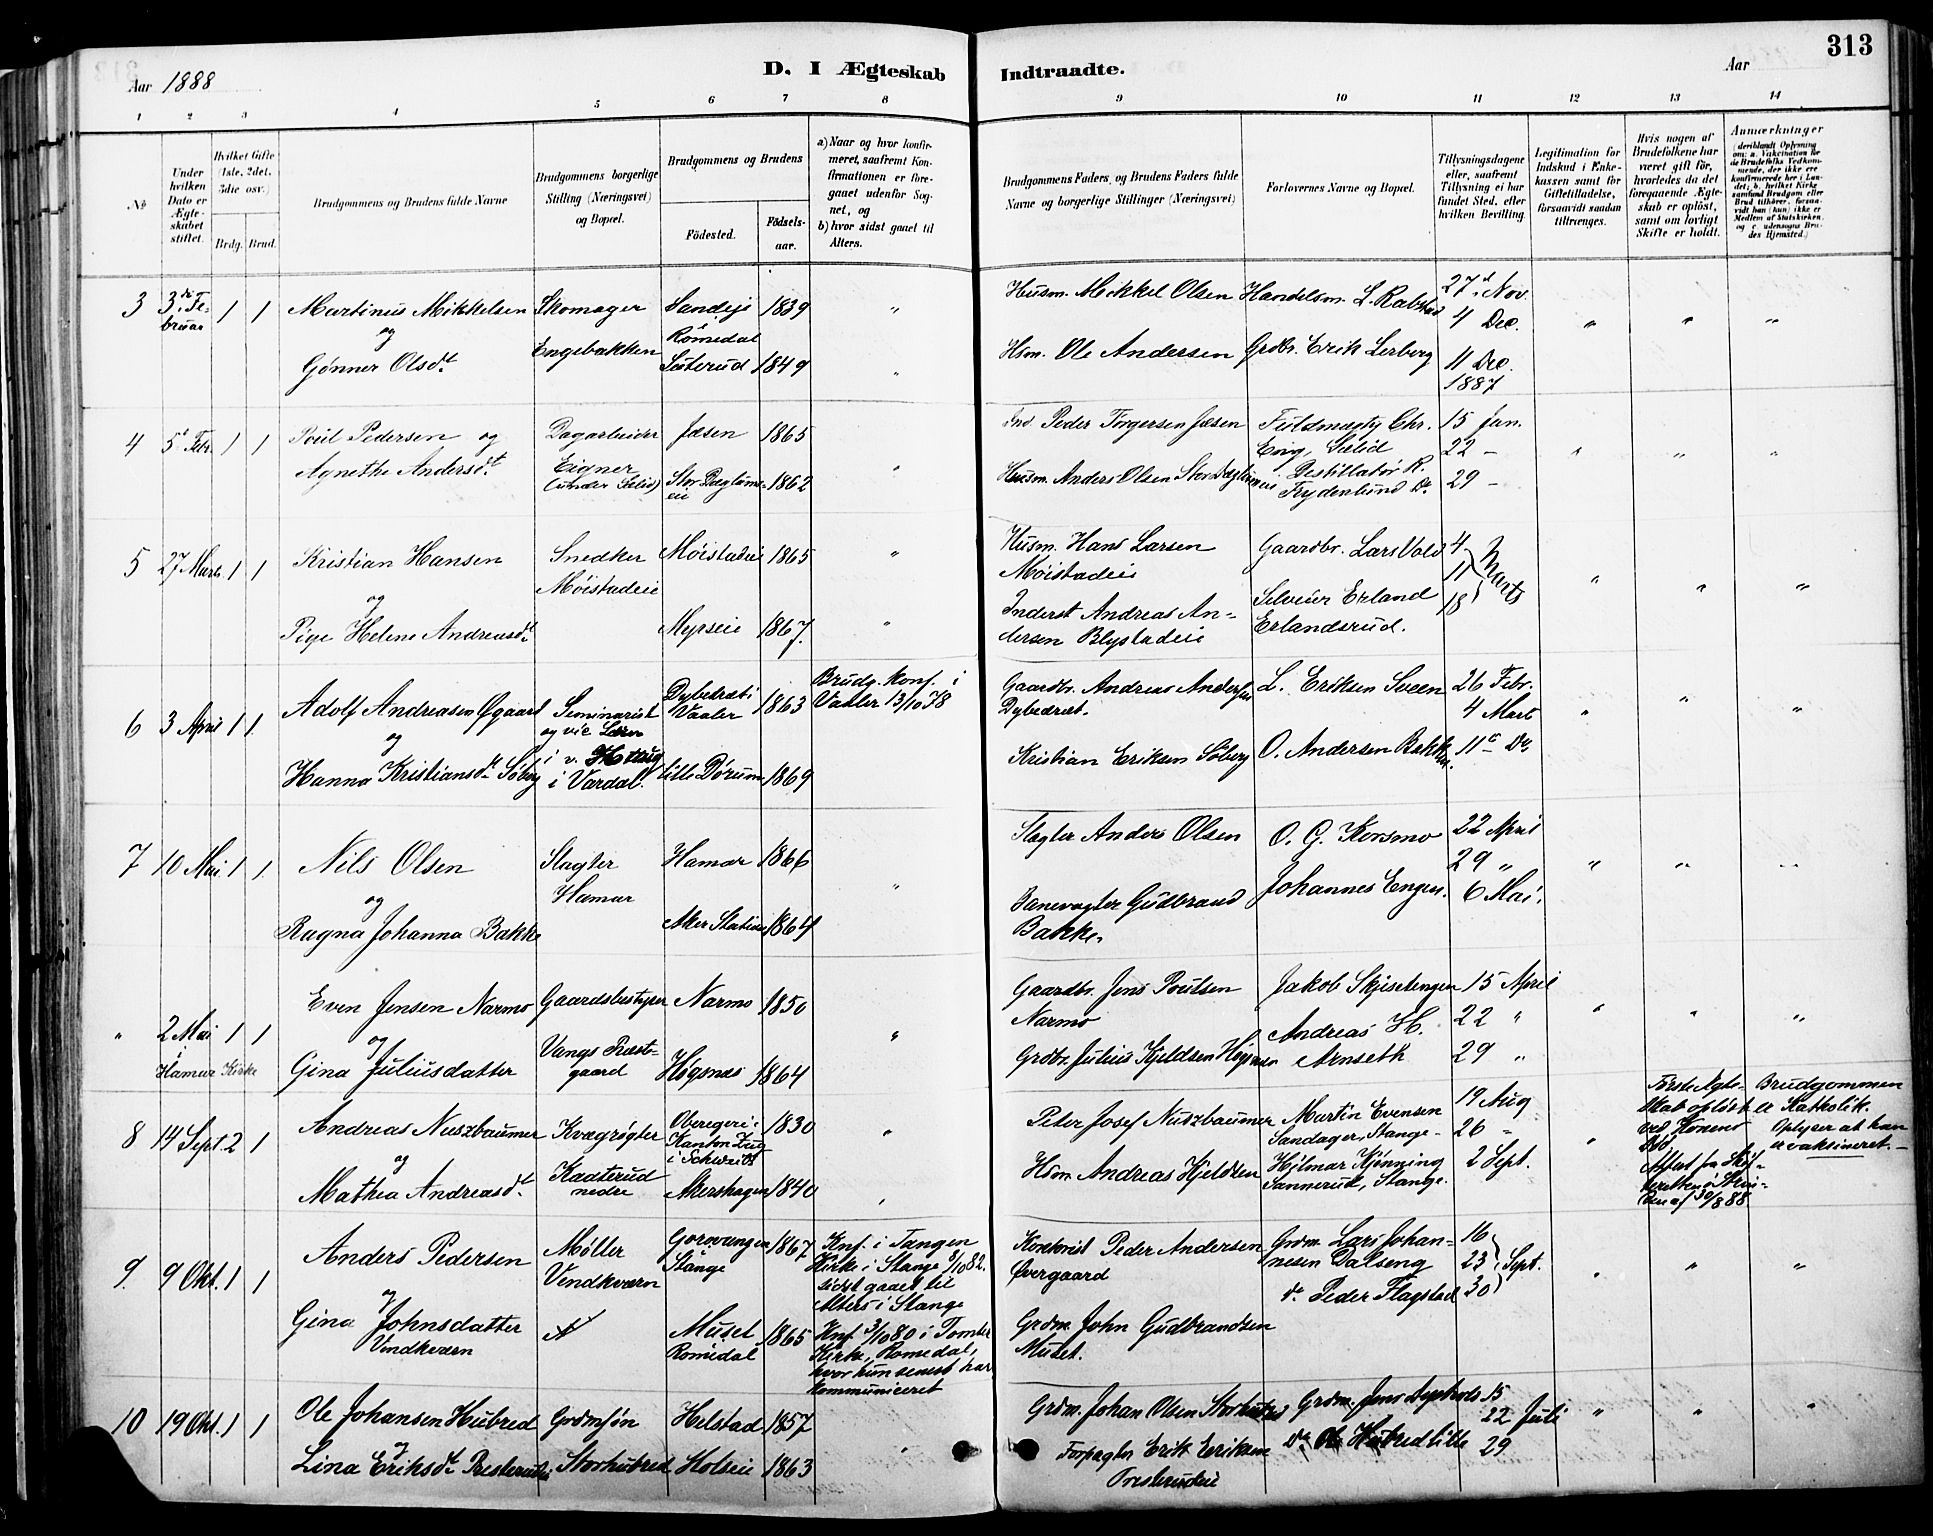 313
Aar 1888
D. I Ægteskab Indtraadte.
Aar
1 2 3 4 5 6 7 8 9 10 11 12 13 14
№
Under hvilken Dato er Ægteskabet stiftet.
Hvilket Gifte (1ste, 2det, 3die osv.)
Brdg. Brud.
Brudgommens og Brudens fulde Navne
Brudgommens borgerlige Stilling (Næringsvei) og Bopæl.
Brudgommens og Brudens
Fødested.
Fødselsaar.
a) Naar og hvor konfirmeret, saafremt Konfirmationen er foregaaet udenfor Sognet, og
b) hvor sidst gaaet til Alters.
Brudgommens Faders, og Brudens Faders fulde Navne og borgerlige Stillinger (Næringsvei)
Forlovernes Navne og Bopæl.
Tillysningsdagene eller, saafremt Tillysning ei har fundet Sted, efter hvilken Bevilling.
Legitimation for Indskud i Enkekassen samt for Giftetilladelse, forsaavidt saadan tiltrænges.
Hvis nogen af Brudefolkene har været gift før, hvorledes da det foregaaende Ægteskab er opløst, samt om lovligt Skifte er holdt.
Anmærkninger (deriblandt Oplysning om: a. Vakcination for de Brudefolks Vedkommende, der ikke ere konfirmerede her i Landet; b. hvilket Kirkesamfund Brudgom eller Brud tilhører, forsaavidt han (hun) ikke er Medlem af Statskirken, og c. udensogns Brudes Hjemsted.)
3 3die Februar 1 1
Martinus Mikkelsen
og
Gønner Olsdt.
Skomager
Engebakken
Sandeje 1839
Romedal
Süterud 1849
Husm. Mikkel Olsen
Hsm. Ole Andersen
Handelsm. L. Rabstad
Grdbr. Erik Lerberg
27d Nov.
4 Dec.
11 Dec.
1887
4 5t Febr. 1 1
Poul Pedersen og
Agnethe Andersdt.
Dagarbeider
Eigner
(under Sælid)
Jæsen 1865
Stor Dæglumeie 1862
Ind. Peder Torgersen Jæsen
Husm. Anders Olsen Stor Dæglumeie
Fuldmægtg Chr.
Eng, Sælid
Destillatør K.
Frydenlund Do.
15 Jan.
22 –
29 –
5 27 Marts 1 1
Kristian Hansen
og
Pige Helene Andreasdt.
Snedker
Møistadeie
Møistadeie 1865
Myrseie 1867.
Husm. Hans Larsen
Møistadeie
Inderst Andreas Andersen
Blystadeie
Gaardbr. Lars Vold
Selveier Erland
Erlandsrud.
4
11
18 Marts
6 3 April 1 1.
Adolf Andreasen Øgaard
og
Hanna Kristiansdt. Søberg
Seminarist
og vic Lærer
i v. Haug
i Vardal.
Dybedræt i
Vaaler 1863
Lille Dørum 1869
Brudg. konf. i
Vaaler 13/10 78
Gaardbr. Andreas Andersen
Dybedræt.
Kristian Eriksen Søberg
L. Eriksen Sveen
O. Andersen Bakken.
26 Febr.
4 Marts
11te Do.
7 10 Mai 1 1.
Nils Olsen
og
Ragna Johanna Bakke
Slagter
Hamar
Hamar 1866
Aker Station 1864
Slagter Anders Olsen
Banevogter Gudbrand
Bakke.
O. G. Korsmo
Johannes Engen.
22 April
29 "
6 Mai.
" 2 Mai 1 1
i
Hamar Kirke
Even Jensen Narmo
og
Gina Juliusdatter
Gaardsbestyrer
Vangs Præstgaard
Narmo 1850
Høgsnæs 1864
Gaardbr. Jens Poulsen
Narmo
Grdbr. Julius Kjeldsen Høgsnæs
Jakob Skjesetengen
Andreas H.
Arnseth
15 April
22 "
29 "
8 14 Sept. 2 1
Andreas Nuszbaumer
og
Mathea Andreasdt.
Kvægrøgter
Kaaterud
nedre
Oberegeri i
Kanton Zug
i Schweits 1830
Akershagen 1840
Peter Josef Nuszbaumer
Hsm Andreas Kjeldsen
Martin Evensen
Sandager, Stange.
Hjelmar Kjønning
Sannerud, Stange.
19 Aug
26 "
2 Sept.
Første Ægteskab opløst
ved Konens
Død
Attest fra Skifteretten
i
af 30/8 88
Brudgommen
er Katholik.
Oplyser at han
er vaksineret.
9. 9 Okt. 1 1
Anders Pedersen
og
Gina Johnsdatter
Vindkværn
Møller
Vendkværn
Gorvangen
Stange 1867
Muset
Romedal 1865
Knf. i Tangen
Kirke i Stange 8/10 82.
sidst gaaet til
Alters i Stange
Knf. 3/10 80 i Tomter
Kirke, Romedal,
hvor hun senest har
kommuniceret
Peder Andersen
Øvergaard
Grdm. John Gudbrandsen
Muset.
Grdm. Lars Johannesen Dalseng
do Peder Flagstad
16
23
30 Sept.
10 19 Okt. 1 1
Ole Johansen Hubred
og
Lina Eriksdt. Presterudei
Grdmsøn
Storhubred
Helstad 1857
Holseie 1863
Grdm. Johan Olsen Storhubred
Forpagter Erik Eriksen
Presterudeie
Grdm. Jens
Do. Ole Hubred lille
15
22 Juli
29